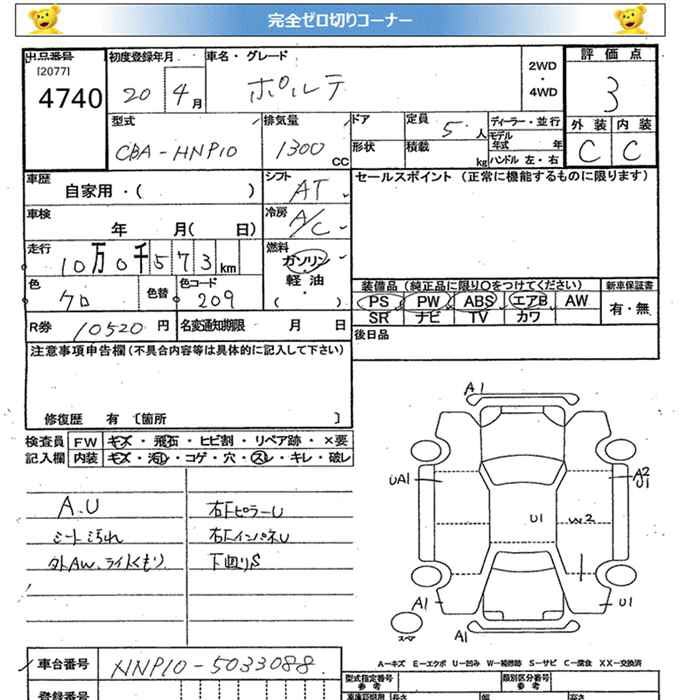 完全ゼロ切りコーナー
出品番号
[2077]
4740
初度登録年月
20 4月
車名・グレード
ポルテ
2WD
・
4WD
評価点
3
外装 内装
C C
型式
CBA-HNP10
排気量
1300 CC
ドア
形状
定員 5 人
積載 kg
ディーラー・並行
モデル年式 年
ハンドル 左・右
車歴
自家用・( )
シフト
AT
セールスポイント (正常に機能するものに限ります)
車検
年 月( 日)
冷房
A/C
走行
10万0千573km
燃料
ガソリン
・
軽油
( )
色
クロ
色替
色コード
209
装備品 (純正品に限り○をつけてください)
PS PW ABS エアB AW
SR ナビ TV カワ
新車保証書
有・無
R券 10520 円
名変通知期限 月 日
後日品
注意事項申告欄(不具合内容等は具体的に記入して下さい)
修復歴 有 〔箇所 〕
検査員記入欄
FW キズ・飛石・ヒビ割・リペア跡・×要
内装 キズ・汚レ・コゲ・穴・スレ・キレ・破レ
A.U
シート汚れ
外AW、ライトくもり
右Fピラー U
右Fインパネ U
下廻りS
A1
UA1
A2
U1
U1
W2
A1
U1
スペア
A1
A-キズ E-エクボ U-凹み W-補修跡 S-サビ C-腐食 XX-交換済
車台番号
HNP10-5033088
登録番号
型式指定番号
参考
類別区分番号
参考
長さ
幅
高さ